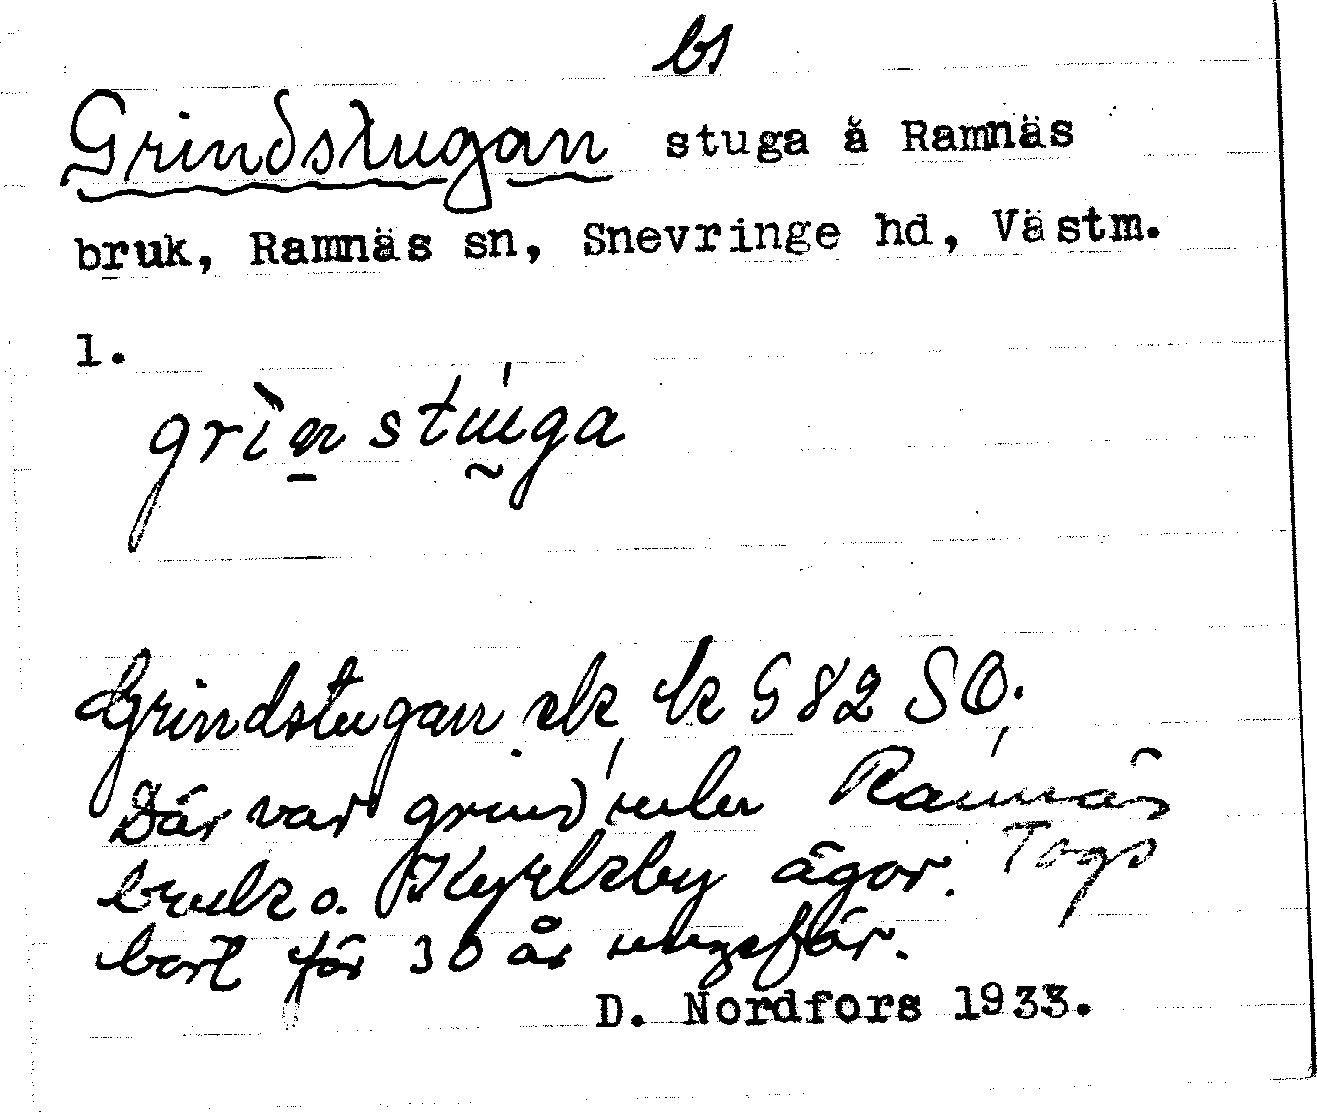 bs
Grindstugan stuga å Ramnäs
bruk, Ramnäs sn, Snevringe hd, Västm.
1.
grìn stúga
Grindstugan ek k G 82 SO.
Där var grind mlu Ramnäs
bruk o. Kyrkby ägor. Togs
bort för 30 år ungefär.
D. Nordfors 1933.